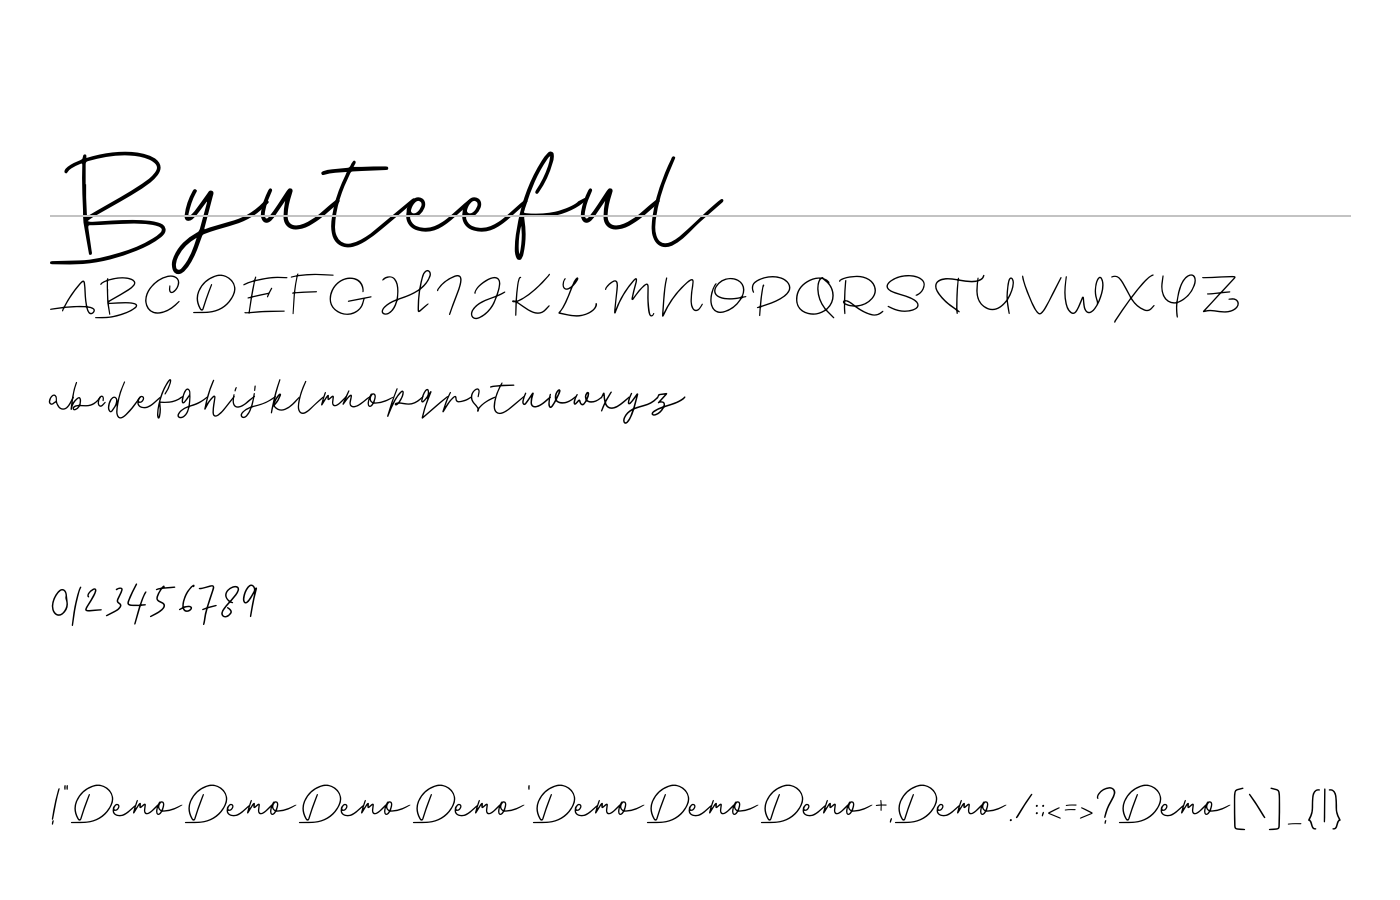 Byuteeful
ABCDEFGHIJKLMNOPQRSTUVWXYZ
abcdefghijklmnopqrstuvwxyz
0123456789
!"DemoDemoDemoDemo'DemoDemoDemo+,Demo./:;<=>?Demo[\]_{|}